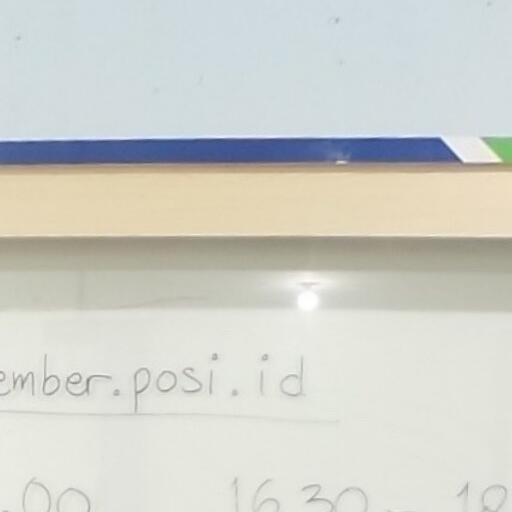 ember.posi.id
.00 16 30 - 18